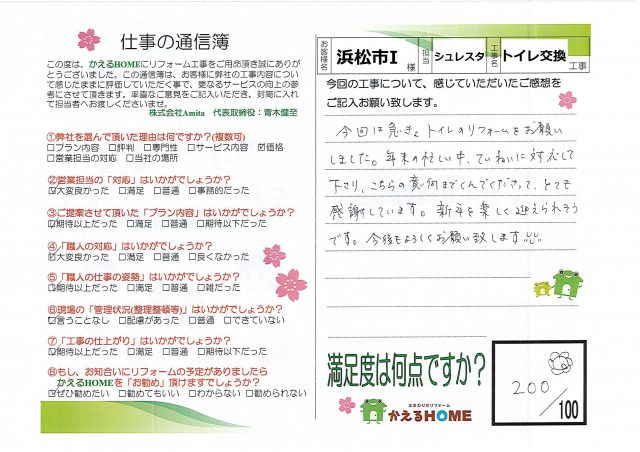 仕事の通信簿
この度は、かえるHOMEにリフォーム工事をご用命頂き誠にありが
とうございました。この通信簿は、お客様に弊社の工事内容につい
て感じたままに評価していただく事で、更なるサービスの向上の参
考にさせて頂きます。率直なご意見をご記入いただき、封筒に入れ
て担当者へお渡しくださいませ。
株式会社Amita 代表取締役:青木健至
①弊社を選んで頂いた理由は何ですか?(複数可)
□プラン内容 □評判 □専門性 □サービス内容 ☑価格
□営業担当の対応 □当社の場所
②営業担当の「対応」はいかがでしょうか?
☑大変良かった □満足 □普通 □事務的だった
③ご提案させて頂いた「プラン内容」はいかがでしょうか?
☑期待以上だった □満足 □普通 □期待以下だった
④「職人の対応」はいかがでしょうか?
☑大変良かった □満足 □普通 □良くなかった
⑤「職人の仕事の姿勢」はいかがでしょうか?
☑期待以上だった □満足 □普通 □雑だった
⑥現場の「管理状況(整理整頓等)」はいかがでしょうか?
☑言うことなし □配慮があった □普通 □できていない
⑦「工事の仕上がり」はいかがでしょうか?
☑期待以上だった □満足 □普通 □期待以下だった
⑧もし、お知合いにリフォームの予定がありましたら
かえるHOMEを「お勧め」頂けますでしょうか?
☑ぜひ勧めたい □勧めてもいい □わからない □勧められない
お客様名 浜松市I 様 担当 シュレスタ 工事名 トイレ交換 工事
今回の工事について、感じていただいたご感想を
ご記入お願い致します。
今回は急きょトイレのリフォームをお願い
しました。年末の忙しい中、ていねいに対応して
下さり、こちらの意向までくんでくださって、とても
感謝しています。新年を楽しく迎えられそう
です。今後もよろしくお願い致します
満足度は何点ですか?
水まわりのリフォーム
かえるHOME
200/100